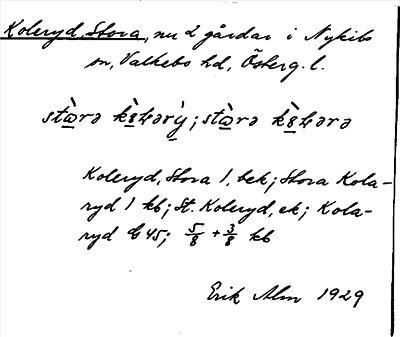 Koleryd, Stora, nu 2 gårdar i Nykils
sn, Valkebo hd, Österg. l.
Koleryd, Stora 1, bek; Stora Kola-
ryd 1 kb; St. Koleryd, ek; Kola-
ryd G 45; 5/8 + 3/8 kb
Erik Alm 1929